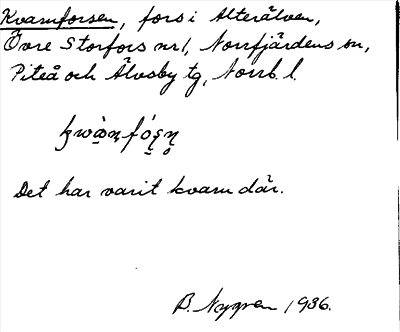 Kvarnforsen, fors i Alterälven,
Övre Storfors nr 1, Norrfjärdens sn,
Piteå och Älvsby tg, Norrb. l.
Det har varit kvarn där.
B. Nygren 1936.